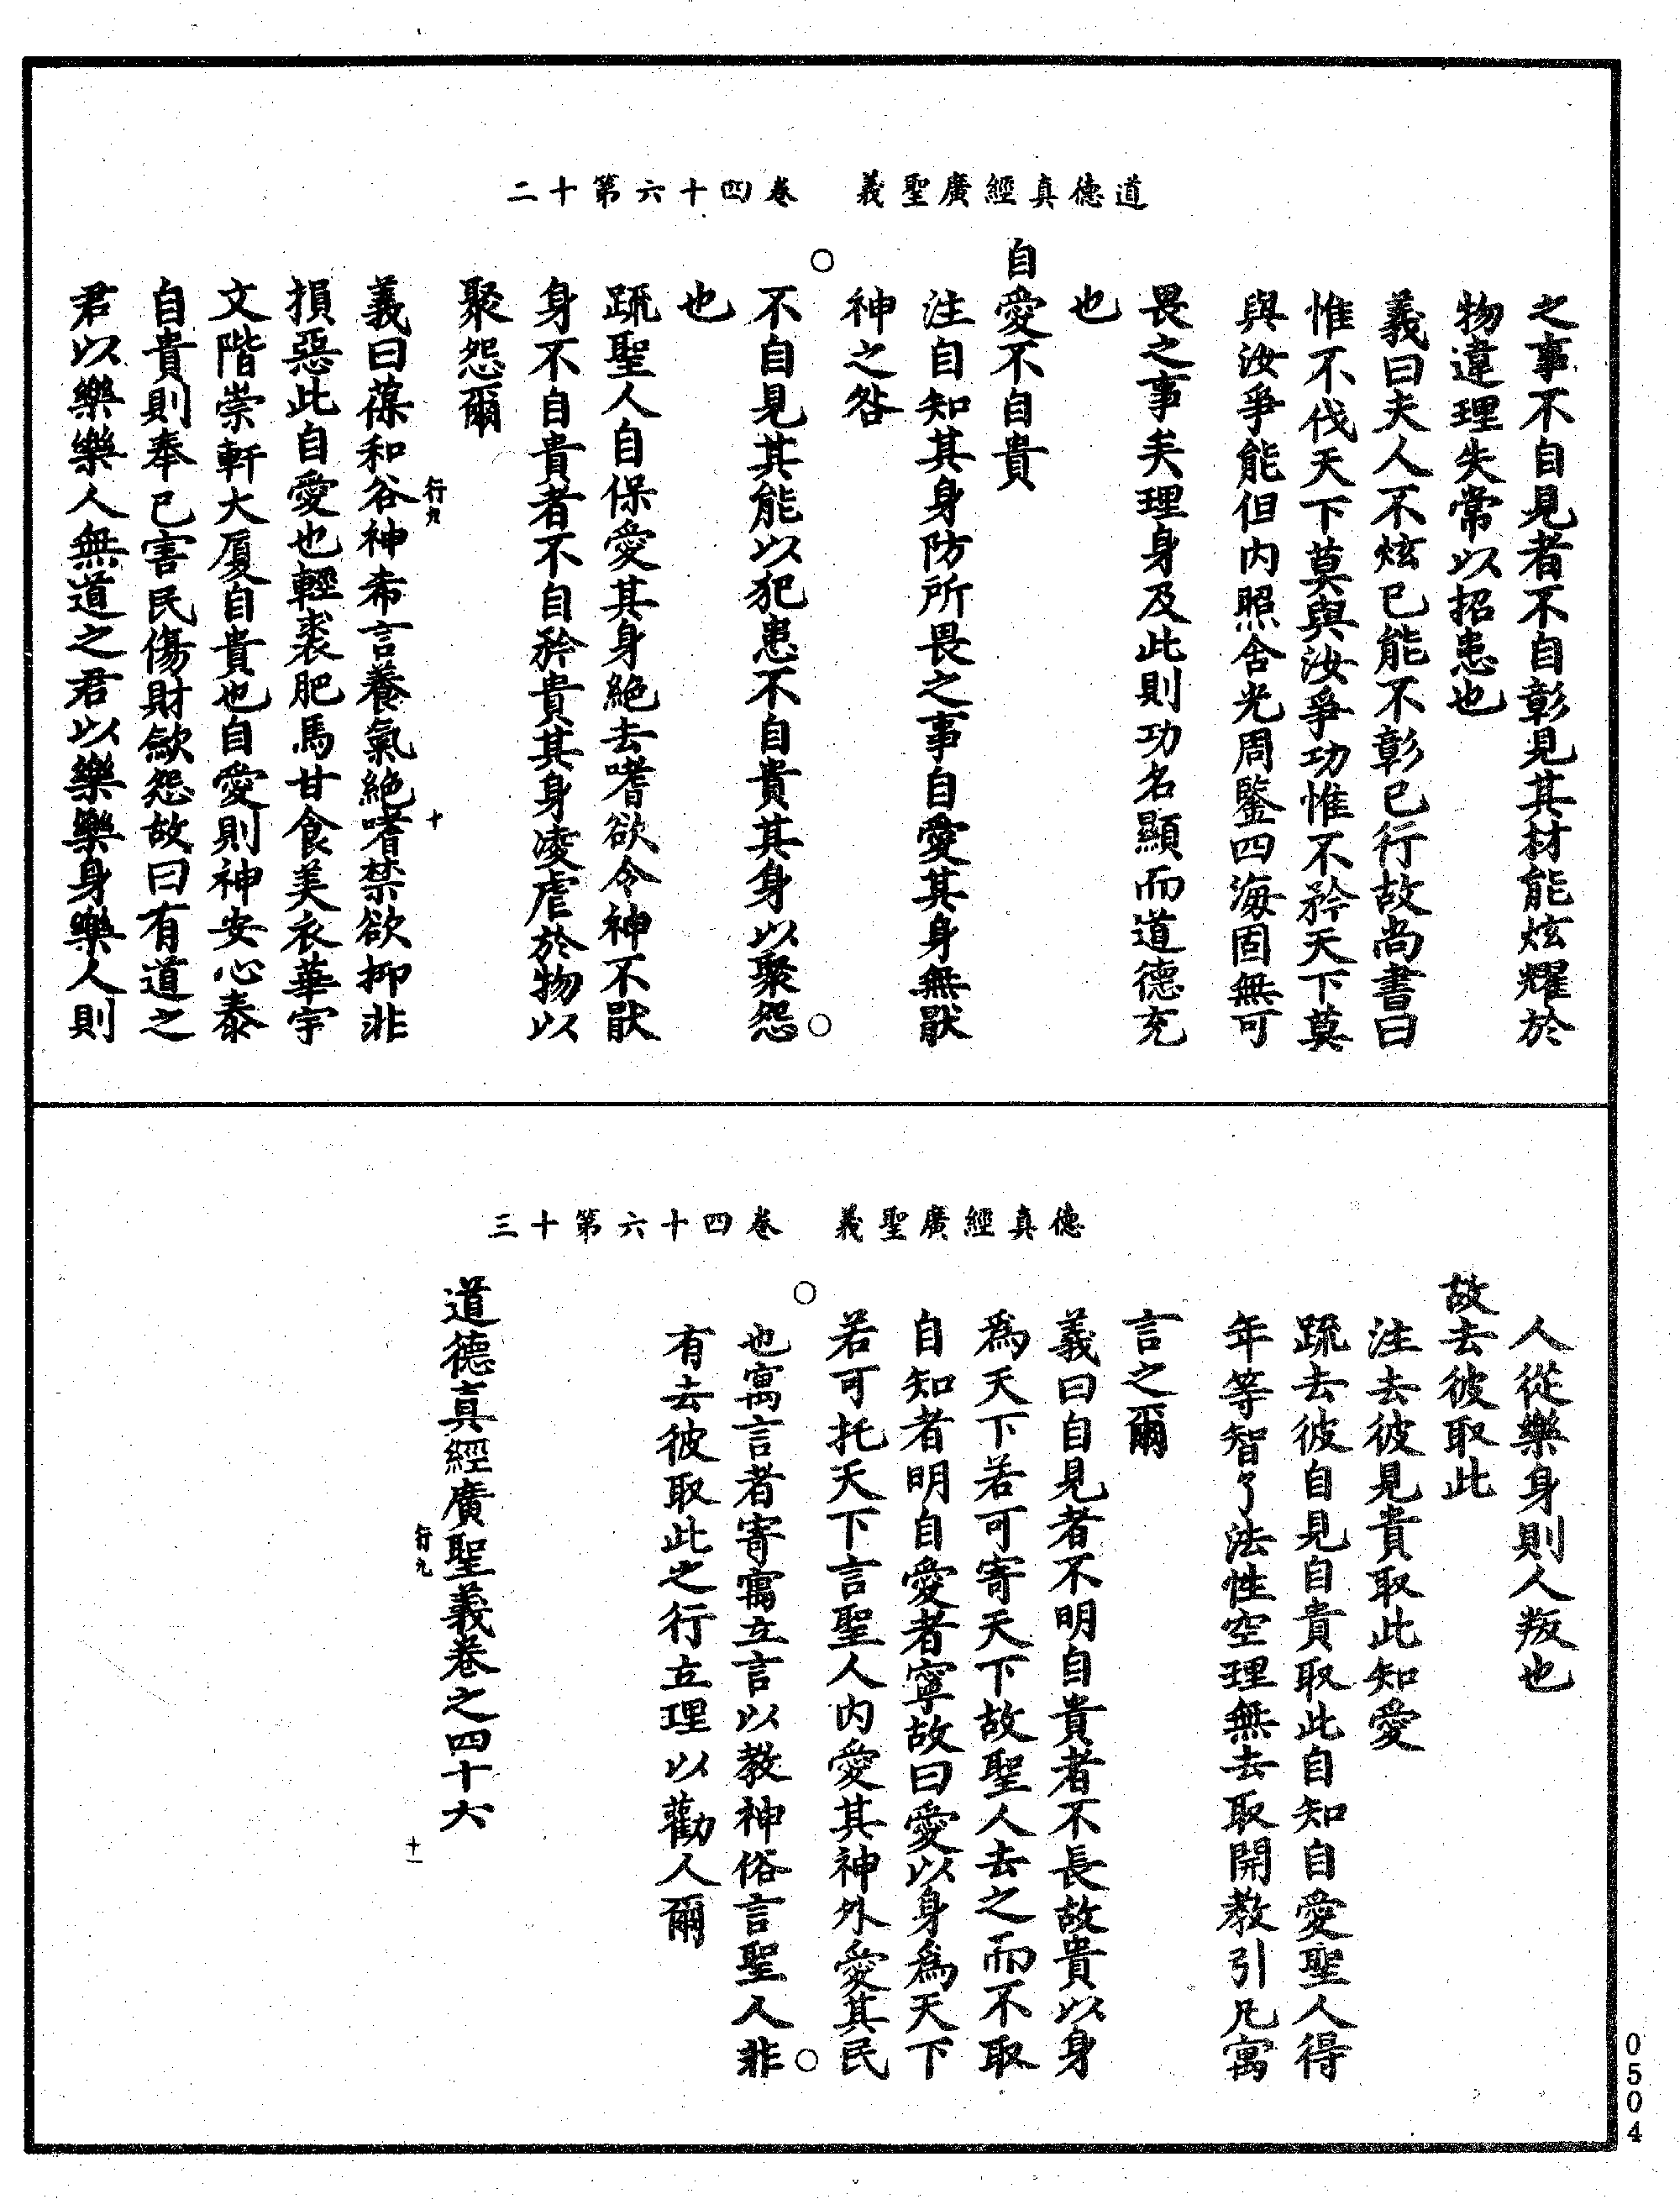 道德真經廣聖義　卷四十六第十二
之事不自見者不自彰見其材能炫耀於
物違理失常以招患也
義曰夫人不炫已能不彰已行故尚書曰
惟不伐天下莫與汝爭功惟不矜天下莫
與汝爭能但内照含光周鑒四海固無可
畏之事矣理身及此則功名顯而道德充
也
自愛不自貴
注自知其身防所畏之事自愛其身無猒
神之咎
不自見其能以犯患不自貴其身以聚怨
也
䟽聖人自保愛其身絶去嗜欲令神不猒
身不自貴者不自矜貴其身凌虐於物以
聚怨爾
行九
十
義曰葆和谷神希言養氣絶嗜禁欲抑非
損惡此自愛也輕裘肥馬甘食美衣華宇
文階崇軒大厦自貴也自愛則神安心泰
自貴則奉已害民傷財歛怨故曰有道之
君以樂樂人無道之君以樂樂身樂人則
德真經廣聖義　卷四十六第十三
人從樂身則人叛也
故去彼取此
注去彼見貴取此知愛
䟽去彼自見自貴取此自知自愛聖人得
年等智了法性空理無去取開教引凡寓
言之爾
義曰自見者不明自貴者不長故貴以身
爲天下若可寄天下故聖人去之而不取
自知者明自愛者寧故曰愛以身爲天下
若可托天下言聖人内愛其神外愛其民
也寓言者寄寓立言以教神俗言聖人非
有去彼取此之行立理以勸人爾
道德真經廣聖義卷之四十六
行九
十一
0504